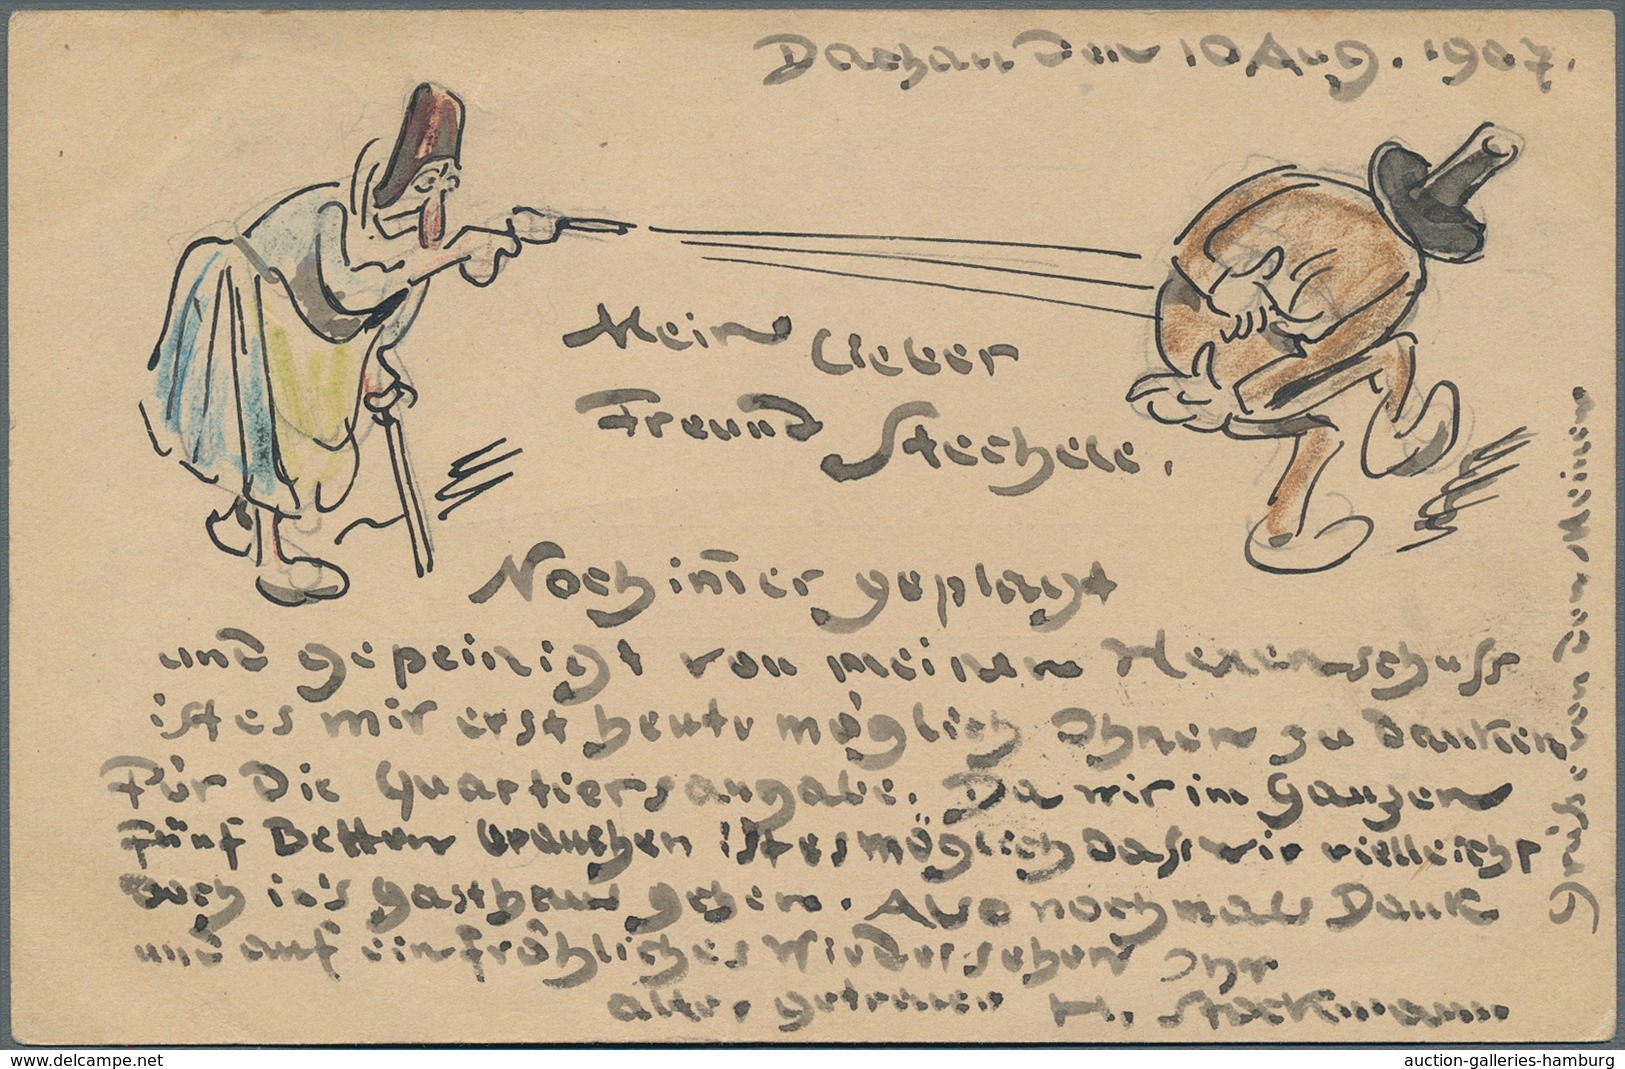 Dachau den 10 Aug. 1907.
Mein lieber
Freund Stechele.
Noch im̄er geplagt
und gepeinigt von meinem Hexenschuss
ist es mir erst heute möglich Ihnen zu danken
Für die Quartiersangabe. Da wir im Ganzen
fünf Betten brauchen ist es möglich dass wir vielleicht
doch in's Gasthaus gehen. Also nochmals Dank
und auf ein fröhliches Wiedersehen Ihr
alter getreuer H. Stockmann
Grüsse von den Meinen
www.delcampe.net
auction-galleries-hamburg